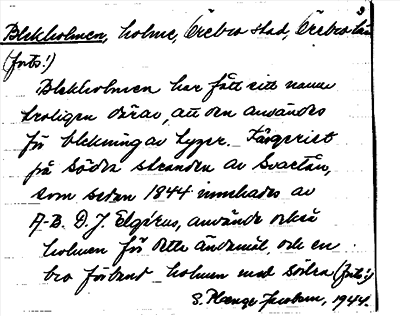 3
Blekholmen, holme, Örebro stad, Örebro län
(forts!)
Blekholmen har fått sitt namn
troligen därav, att den användes
för blekning av tyger. Färgeriet
på södra stranden av Svartån,
som sedan 1844 innehades av
A-B. D. J. Elgérus, använde också
holmen för detta ändamål, och en
bro förband holmen med södra (forts!)
S. 1944.